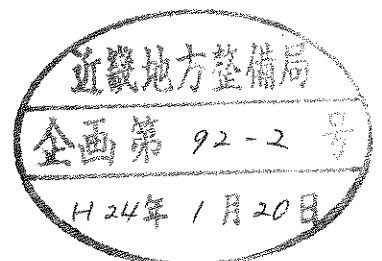 近畿地方整備局
企画第 92-2 号
H 24年 1月 20日